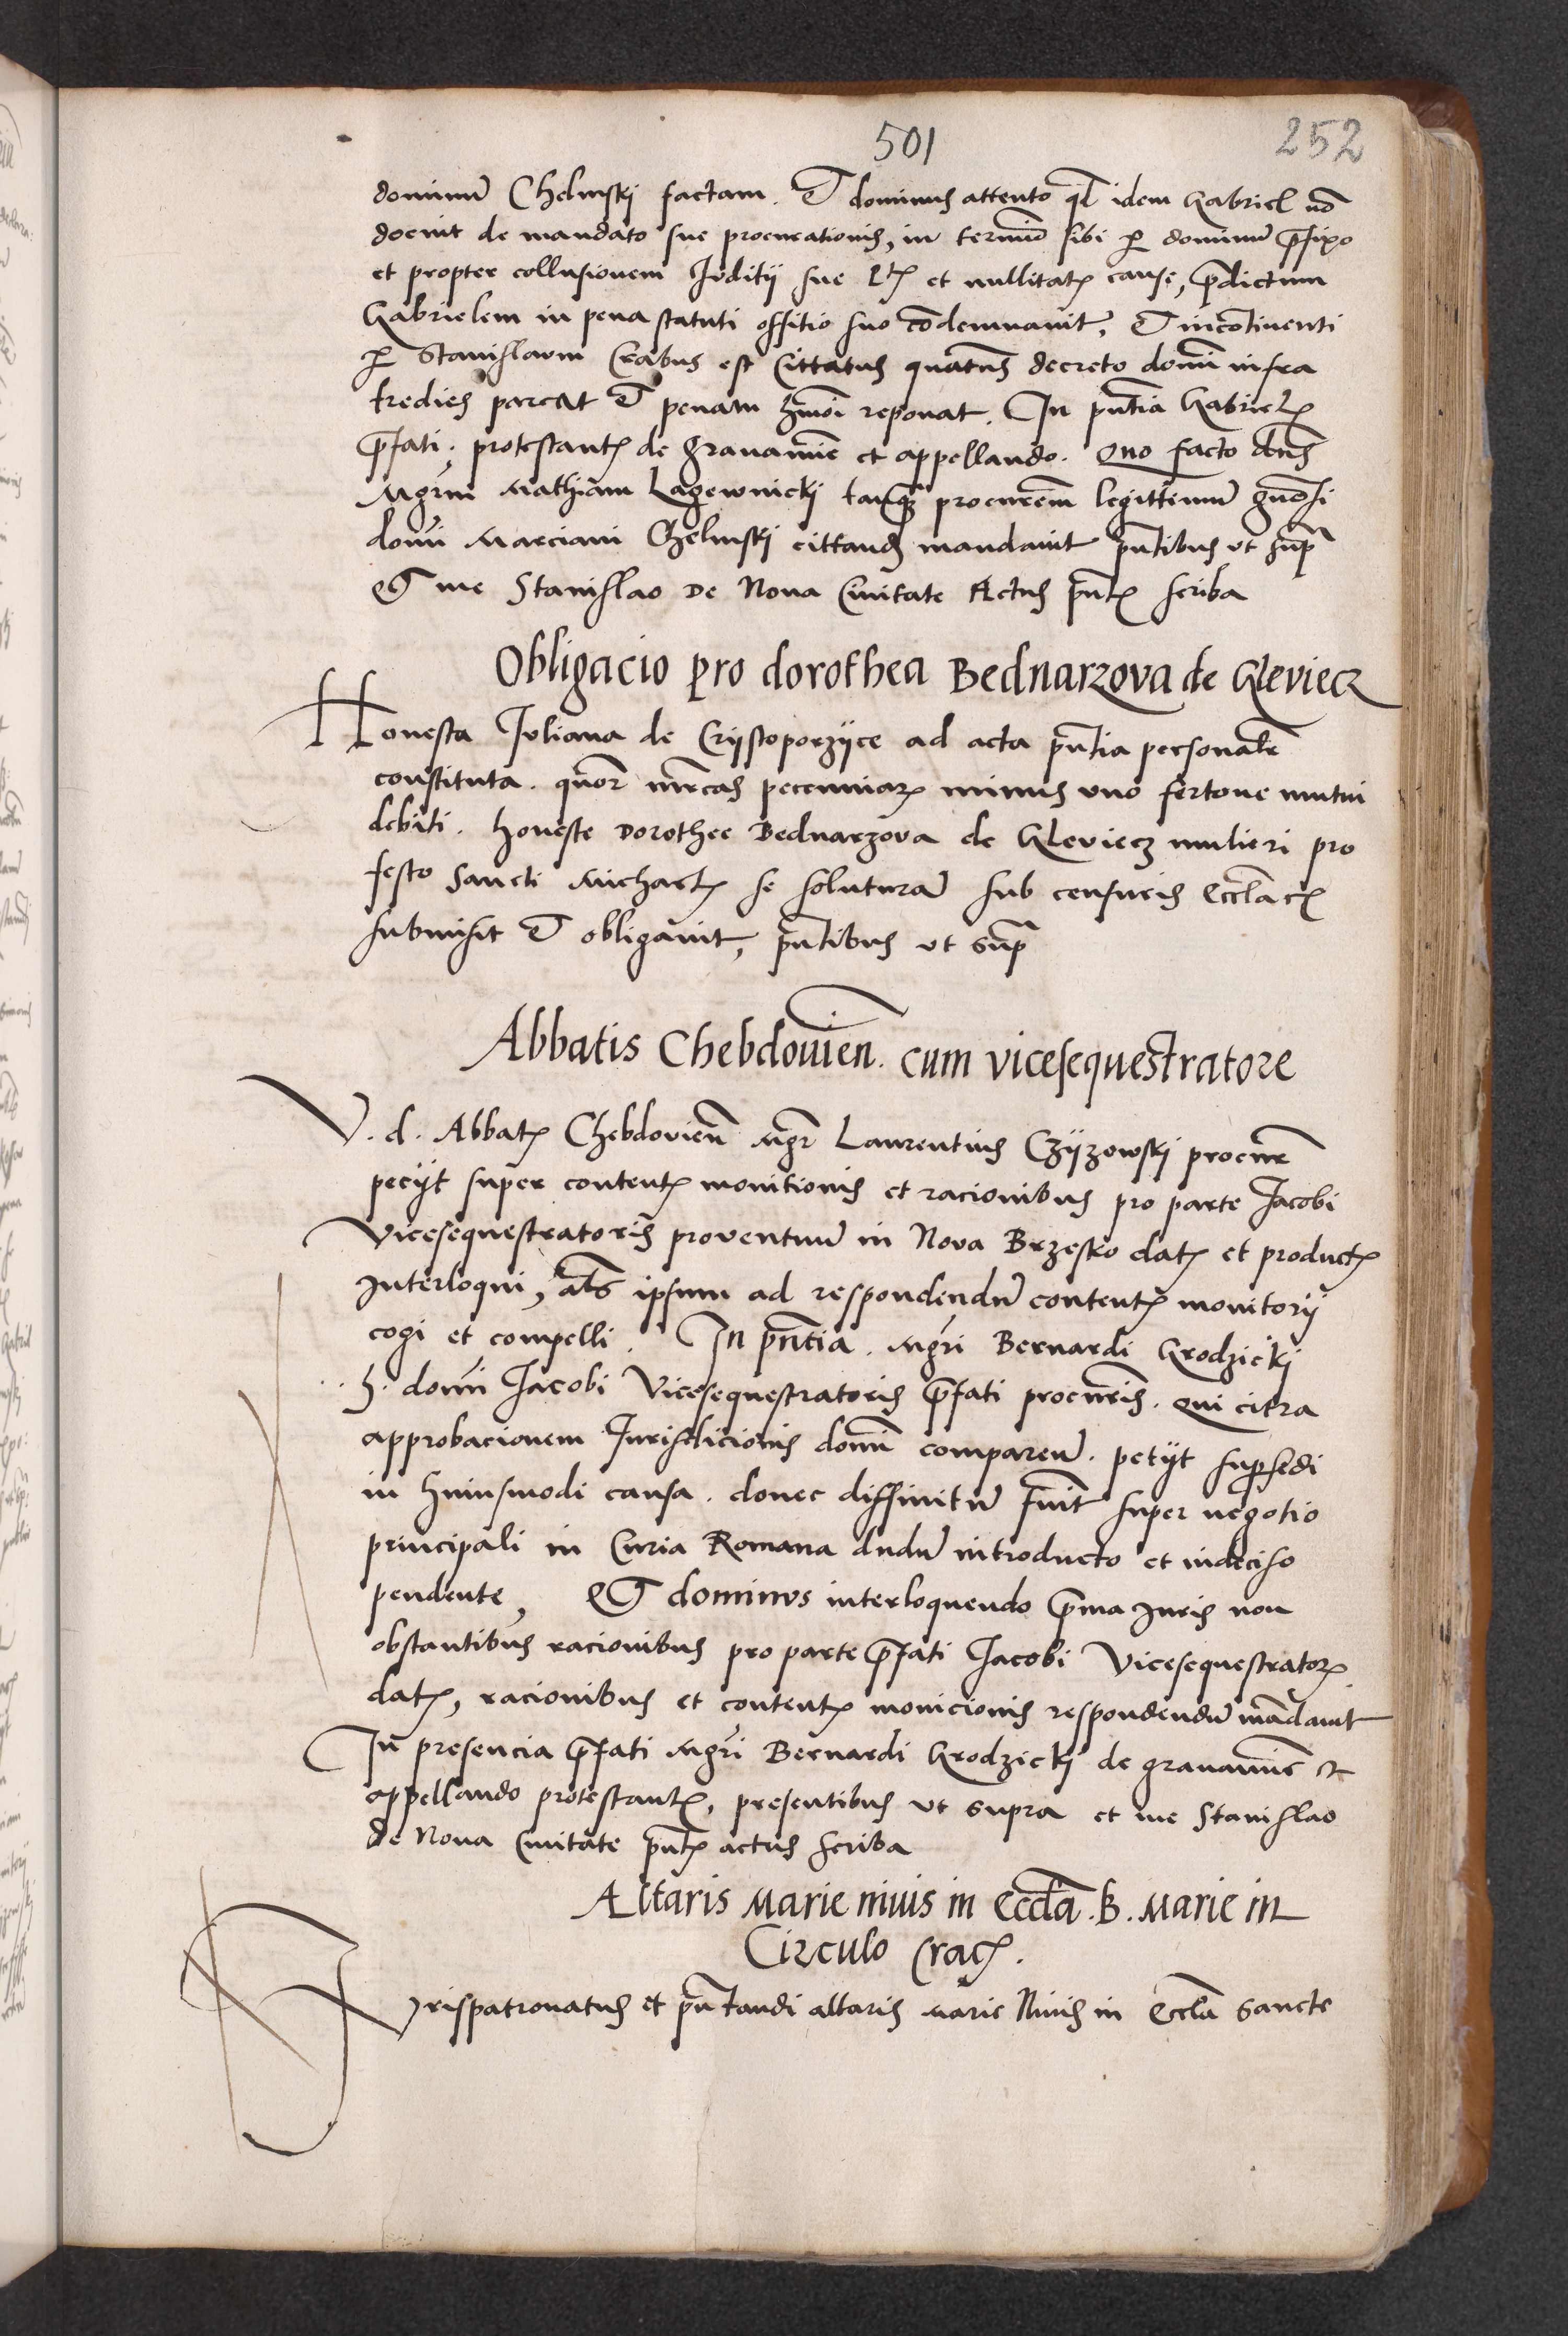 501
252
dominū Chelmskj factam. Et dominus attento qd idem Gabriel nō
docuit de mandato sue procurationis, in terminō sibi p dominū pfixo
et propter collusionem Juditij sue et nullitatē cause, pdictum
Gabrielem in pena statuti offitio suo cōdemnauit, Et incōtinenti
p Stanislaum Crabus est Cittatus quatenus decreto domī infra
tredies pareat Et penam hmōi reponat. In pntia Gabrielis
pfati. protestantis de grauamīe et appellando. Quo facto dns
Mgrm Mathiam Lagewnickj tanq procurem legittimū gnosi
domī Marciani Chelmskj cittandū mandauit pntibus ut sup
Et me Stanislao De Noua Ciuitate Actus pntis scriba
Obligacio pro dorothea Bednarzova de Gleviecz
Honesta Juliana de Crijstoporzijce ad acta pntia personalr
constituta. quor mrcas pecuniar minus uno fertone mutui
debiti. honeste Dorothee Bednarzova de Gleviecz mulieri pro
festo Sancti Michaelis se soluturā sub censuris Eccliacis
submisit Et obligauit, pntibus ut sup
Abbatis Chebdouien. cum vicesequestratore
V. d. Abbatis Chebdovien Mgr Laurentius Czijzowskj procur
pecijt super contentis monitionis et racionibus pro parte Jacobi
Vicesequestratoris proventuū in Nova Brzesko datis et productis
Interloqui, als ipsum ad respondendū contentis monitorij
cogi et compelli. In pntia. Mgri Bernardi Grodzickj
h. domī Jacobi Vicesequestratoris pfati procuris. Qui citra
approbacionem Jurisdicionis domī comparen. petijt supsedi
in huiusmodi causa. donec diffinitū fuit super negotio
principali in Curia Romana dudū introducto et indeciso
pendente, Et dominus interloquendo pma Juris non
obstantibus racionibus pro parte pfati Jacobi Vicesequestrator
datis, racionibus et contentis monicionis respondendū mādauit
In presencia pfati Mgri Bernardi Grodzickj de grauamīe et
appellando protestantis, presentibus ut supra et me Stanislao
de Noua Ciuitate pntis actus scriba
Altaris Marie niuis in Eccła. B. Marie in
Circulo Crac.
Jvrispatronatus et pntandi altaris Marie Niuis in Eccła Sancte